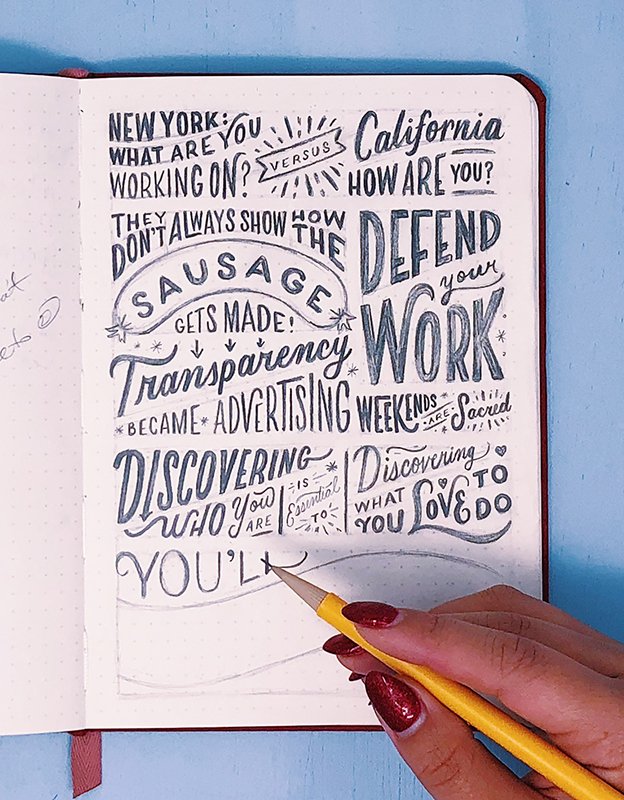 NEW YORK:
WHAT ARE YOU
WORKING ON?
VERSUS
California
HOW ARE YOU?
THEY
DON'T ALWAYS SHOW HOW
THE
SAUSAGE
GETS MADE!
Transparency
BECAME ADVERTISING
DEFEND
your
WORK
WEEKENDS ARE Sacred
DISCOVERING
WHO You
ARE
IS
Essential
TO
Discovering
WHAT
YOU LOVE TO
DO
YOU'LL